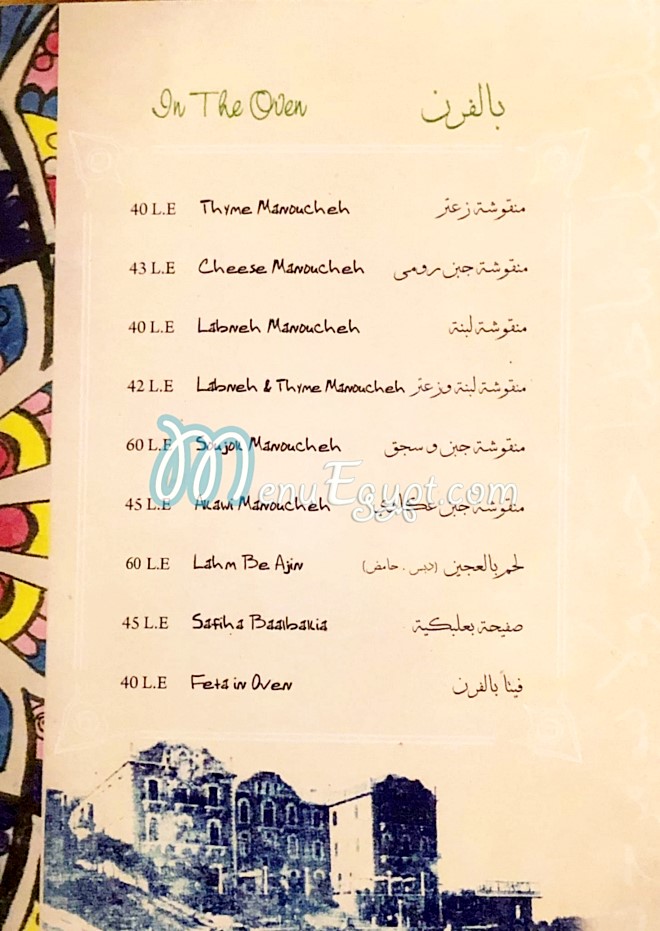 In The Oven بالفرن
40 L.E Thyme Manoucheh منقوشة زعتر
43 L.E Cheese Manoucheh منقوشة جبن رومى
40 L.E Labneh Manoucheh منقوشة لبنة
42 L.E Labneh & Thyme Manoucheh منقوشة لبنة وزعتر
60 L.E Soujok Manoucheh منقوشة جبن و سجق
MenuEgypt.com
45 L.E Akawi Manoucheh منقوشة جبن عكاوي
60 L.E Lahm Be Ajin لحم بالعجين (دبس . حامض)
45 L.E Safiha Baalbakia صفيحة بعلبكية
40 L.E Feta in Oven فيتاً بالفرن